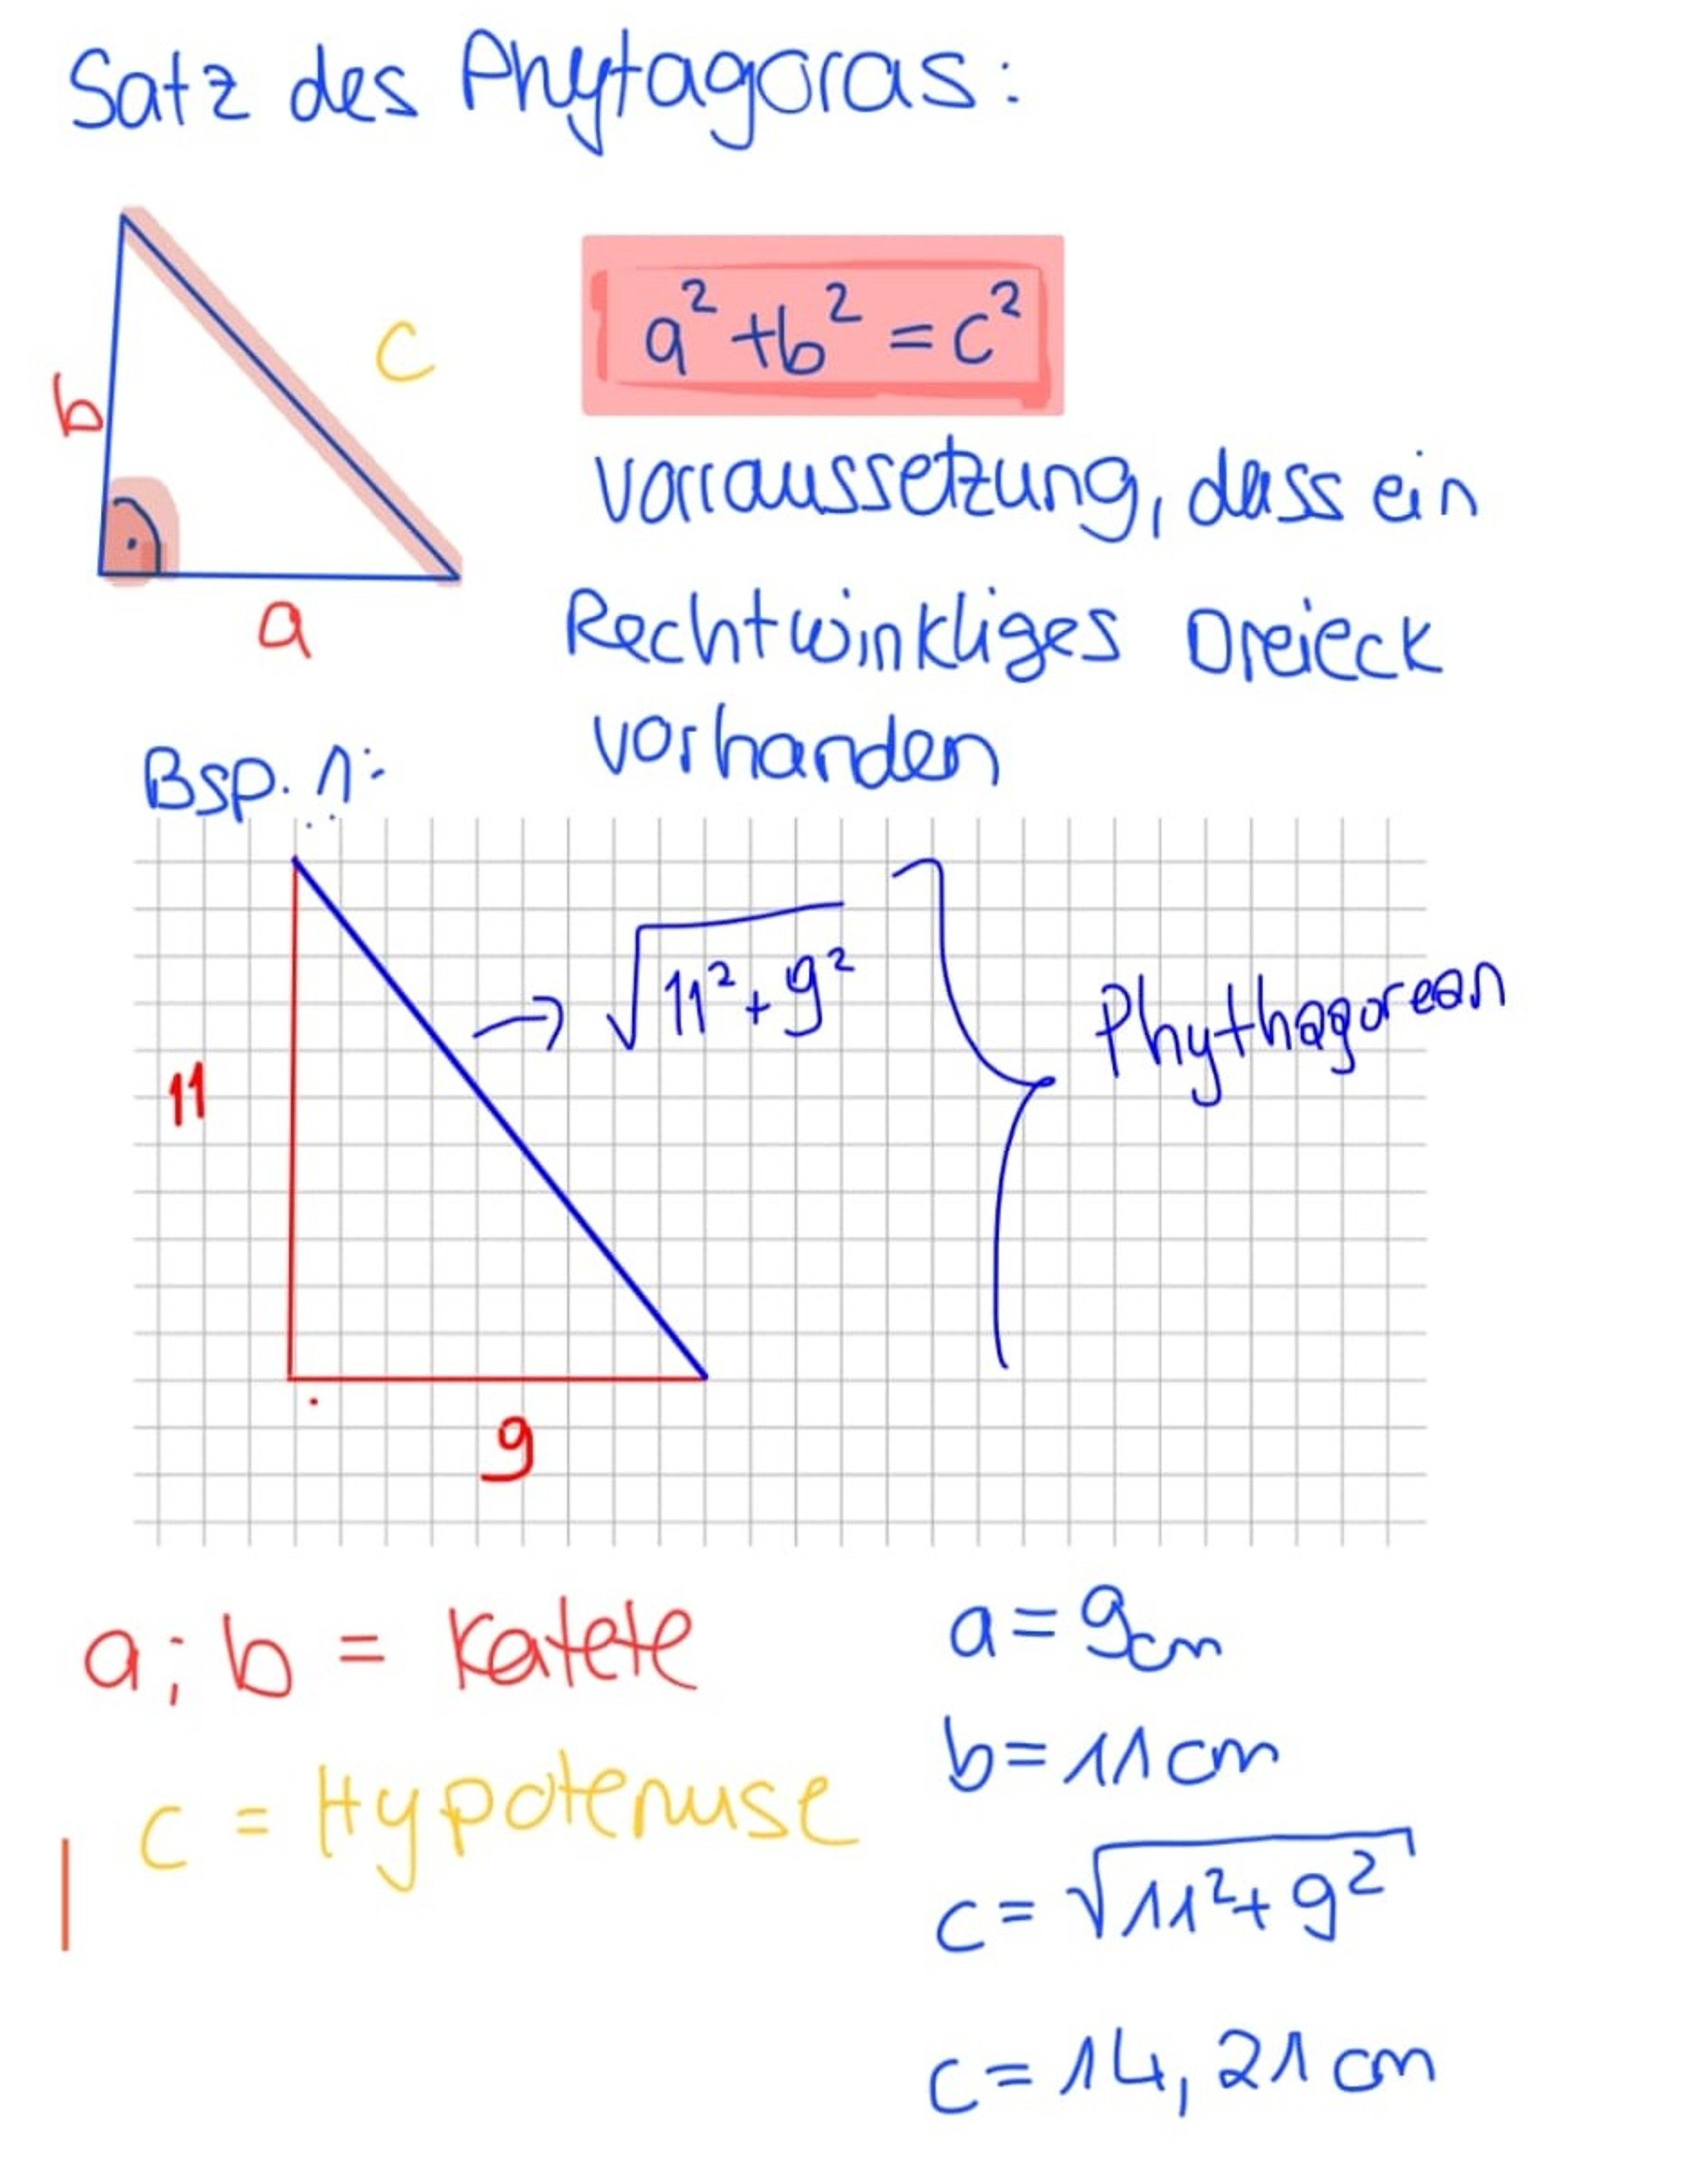 Satz des Phytagoras:
c
b
a
a² + b² = c²
Vorraussetzung, dass ein
Rechtwinkliges Dreieck
vorhanden
Bsp. 1:
→ √11² + 9²
Phythagorean
11
9
a; b = Katete
c = Hypotenuse
a = 9cm
b = 11cm
c = √11² + 9²
c = 14,21cm